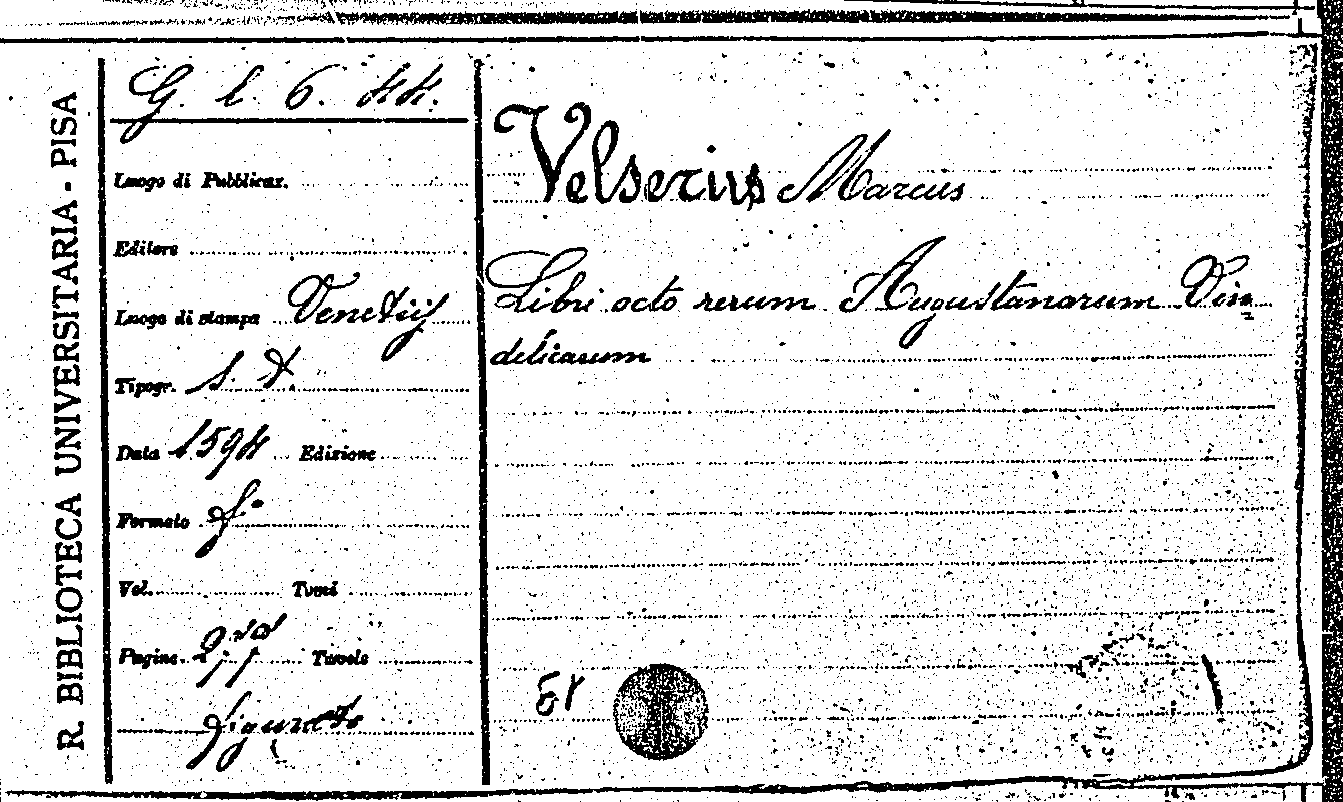 R. BIBLIOTECA UNIVERSITARIA - PISA
G. l. 6. 44.
Luogo di Pubblicaz.
Editore
Luogo di stampa Venetiis
Tipogr. s. t.
Data 1594 Edizione
Formato f.°
Vol. Tomi
Pagine Tavole
figurato
Velserius Marcus
Libri octo rerum Augustanarum Vin=
delicarum